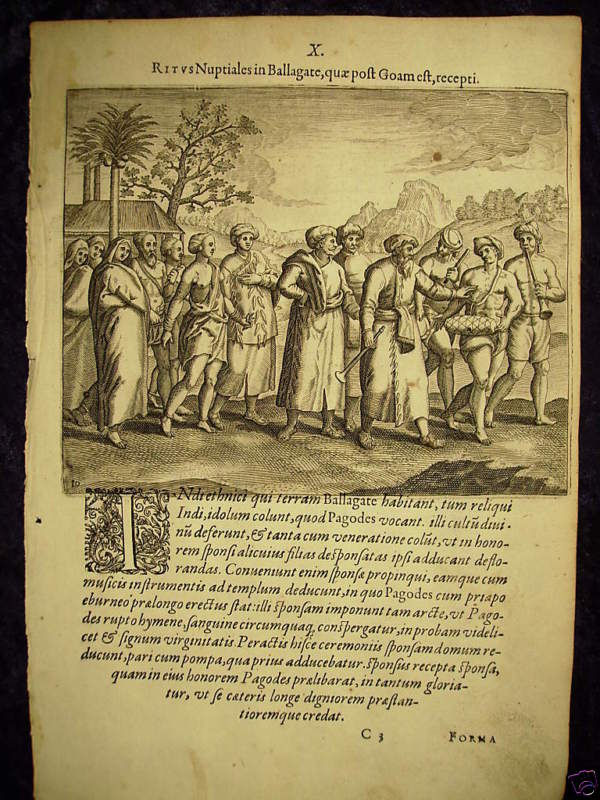 X.
RITVS Nuptiales in Ballagate, quæ post Goam est, recepti.
10
INdi ethnici qui terram Ballagate habitant, tum reliqui
Indi, idolum colunt, quod Pagodes vocant. illi cultũ divi-
nũ deferunt, & tanta cum veneratione colũt, vt in hono-
rem sponsi alicuius filias desponsatas ipsi adducant deflo-
randas. Conveniunt enim sponsæ propinqui, eamque cum
musicis instrumentis ad templum deducunt, in quo Pagodes cum priapo
eburneo prælongo erectus stat: illi sponsam imponunt tam arcte, vt Pago-
des rupto hymene, sanguine circumquaq; conspergatur, in probam videli-
cet & signum virginitatis. Peractis hisce ceremoniis sponsam domum re-
ducunt, pari cum pompa, qua prius adducebatur. sponsus recepta sponsa,
quam in eius honorem Pagodes prælibarat, in tantum gloria-
tur, vt se cæteris longe digniorem præstan-
tioremque credat.
C 3 FORMA